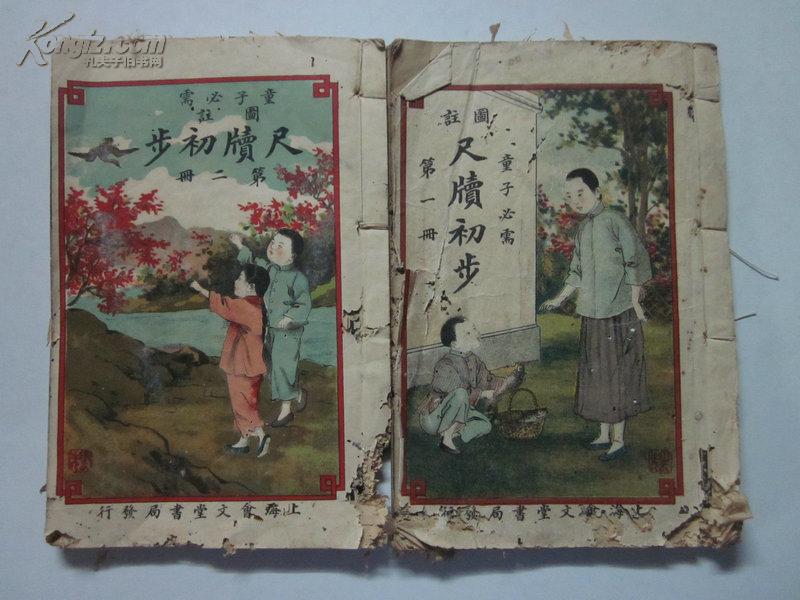 Kongfz.com
孔夫子旧书网
童子必需
圖註
尺牘初步
第二冊
上海會文堂書局發行
圖註
童子必需
尺牘初步
第一冊
上海會文堂書局發行